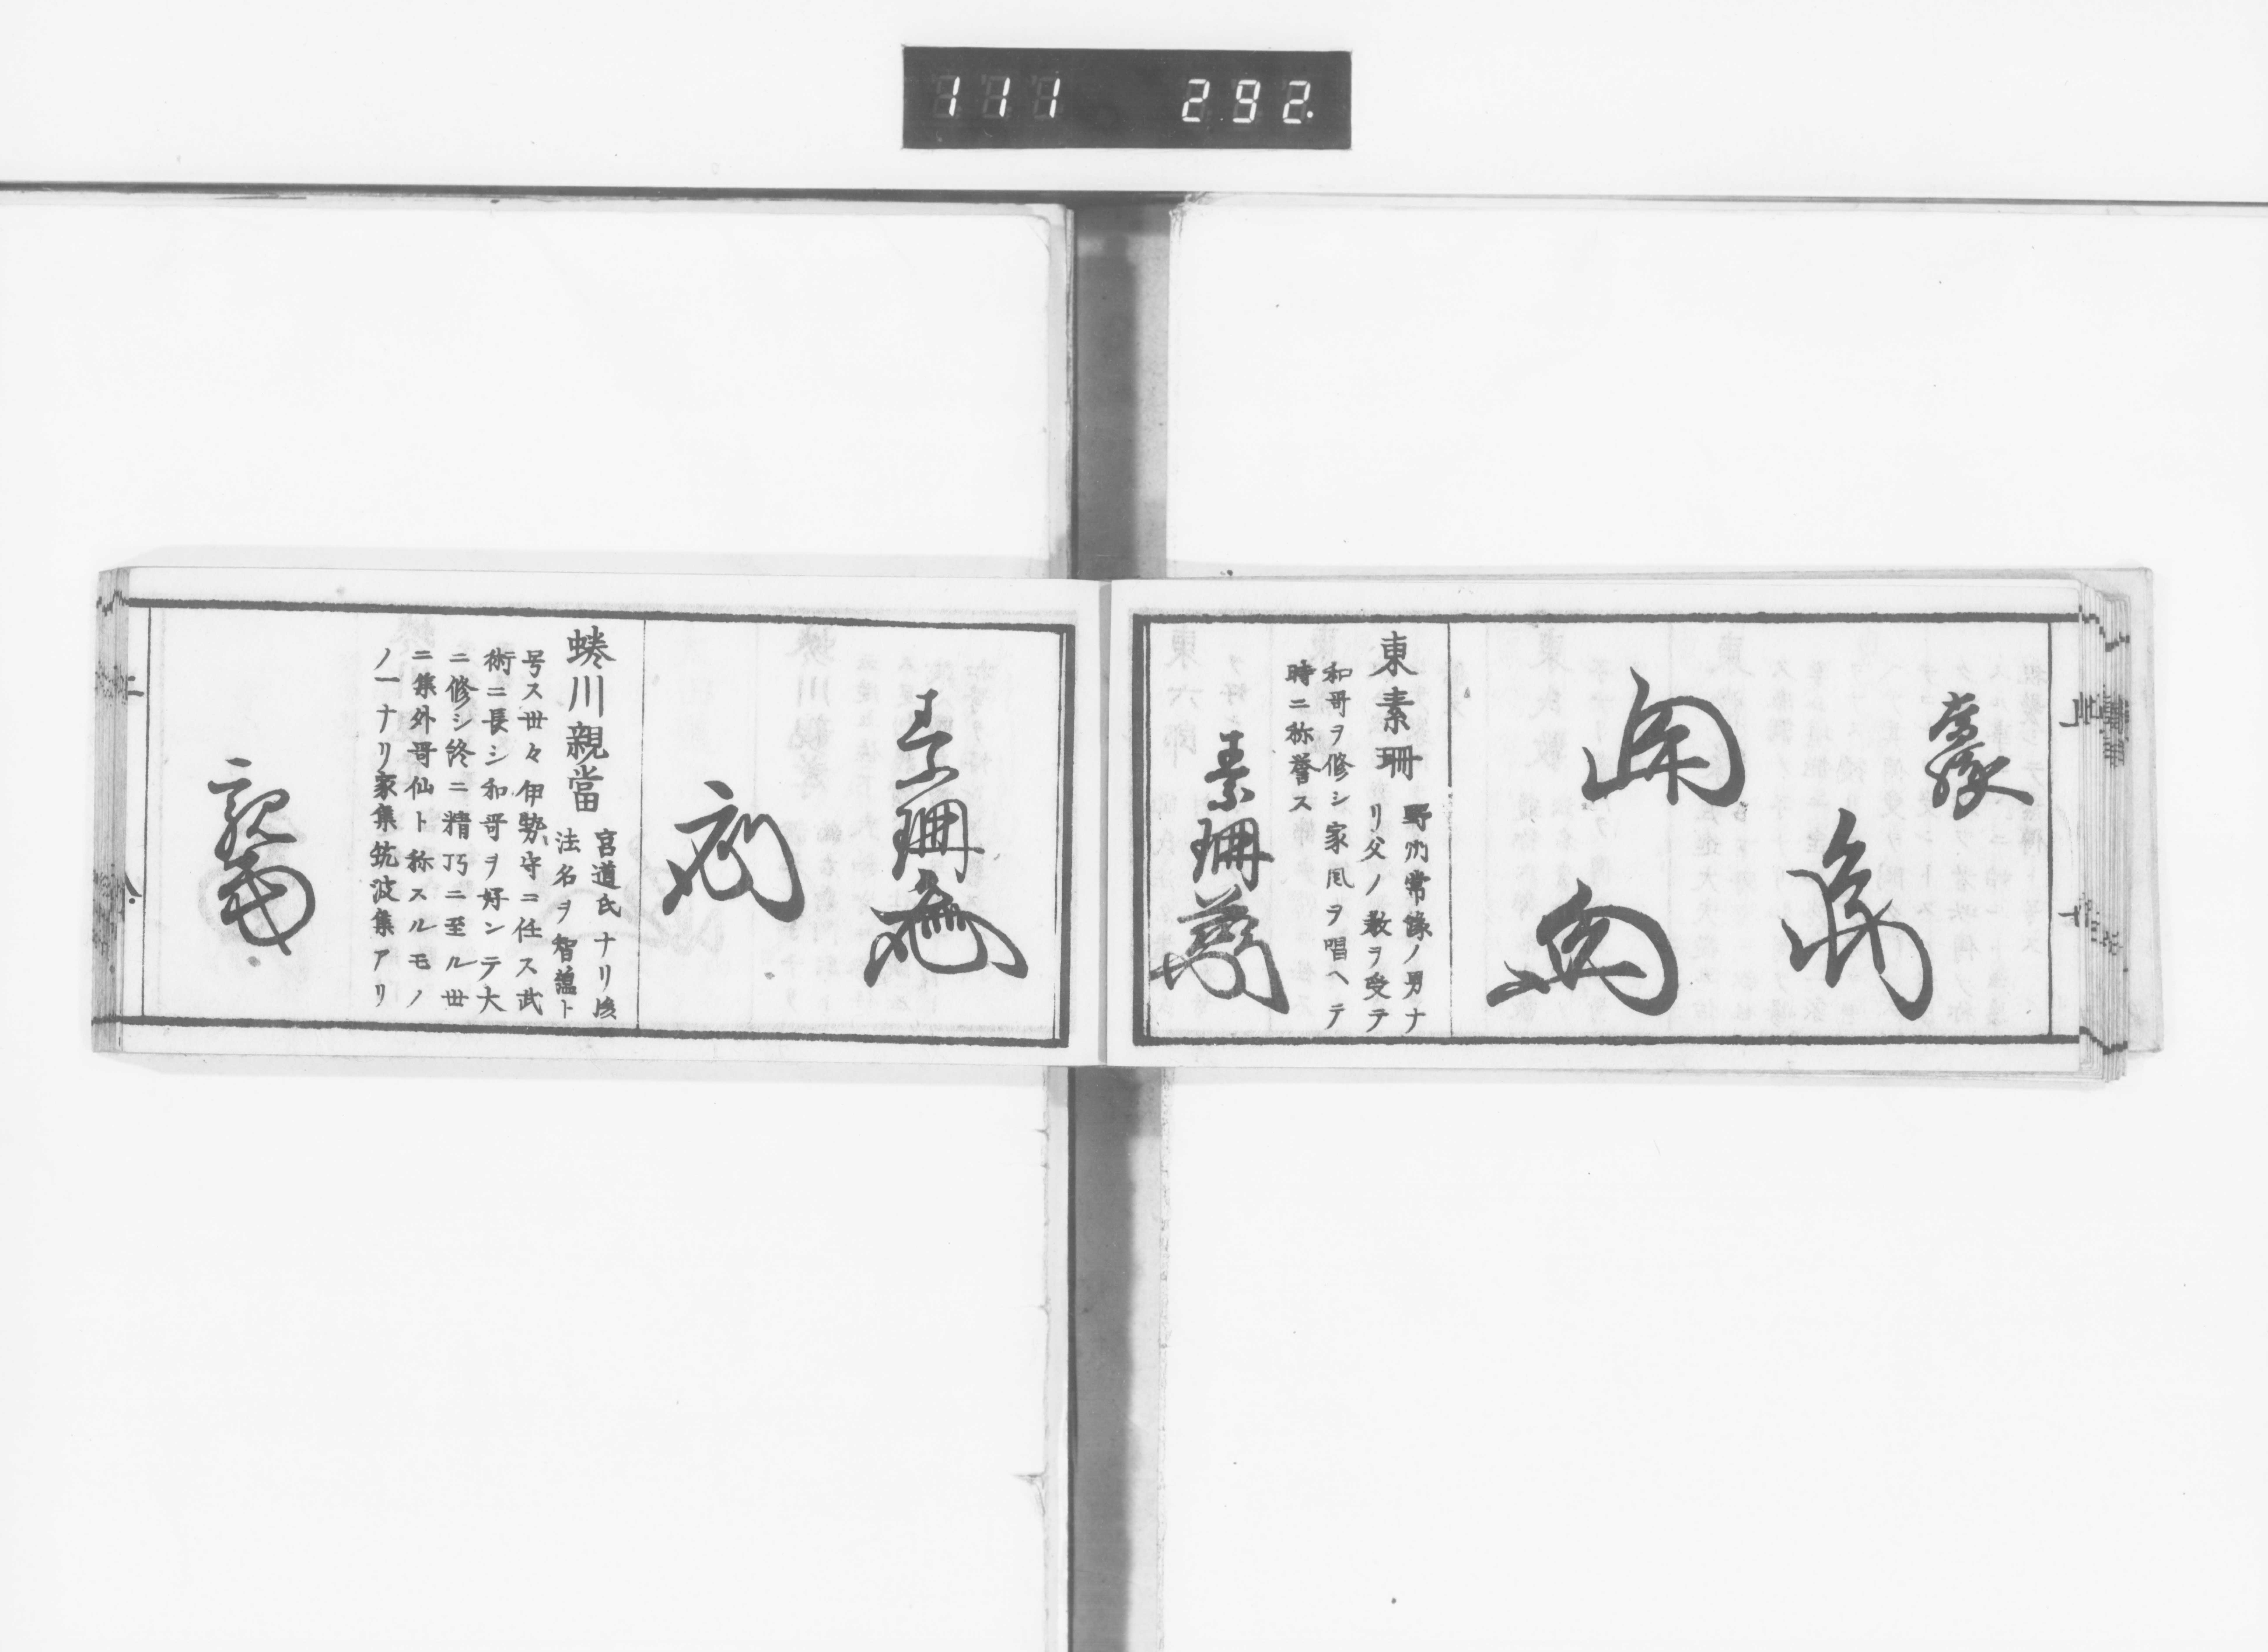 111 292.
東素珊
野州常縁ノ男ナ
リ父ノ教ヲ受テ
和哥ヲ修シ家風ヲ唱ヘテ
時ニ称誉ス
素珊
素珊
蜷川親當
宮道氏ナリ後
法名ヲ智蘊ト
号ス丗々伊勢守ニ任ス武
術ニ長シ和哥ヲ好ンテ大
ニ修シ終ニ精巧ニ至ル丗
ニ集外哥仙ト称スルモノ
ノ一ナリ家集筑波集アリ
親當